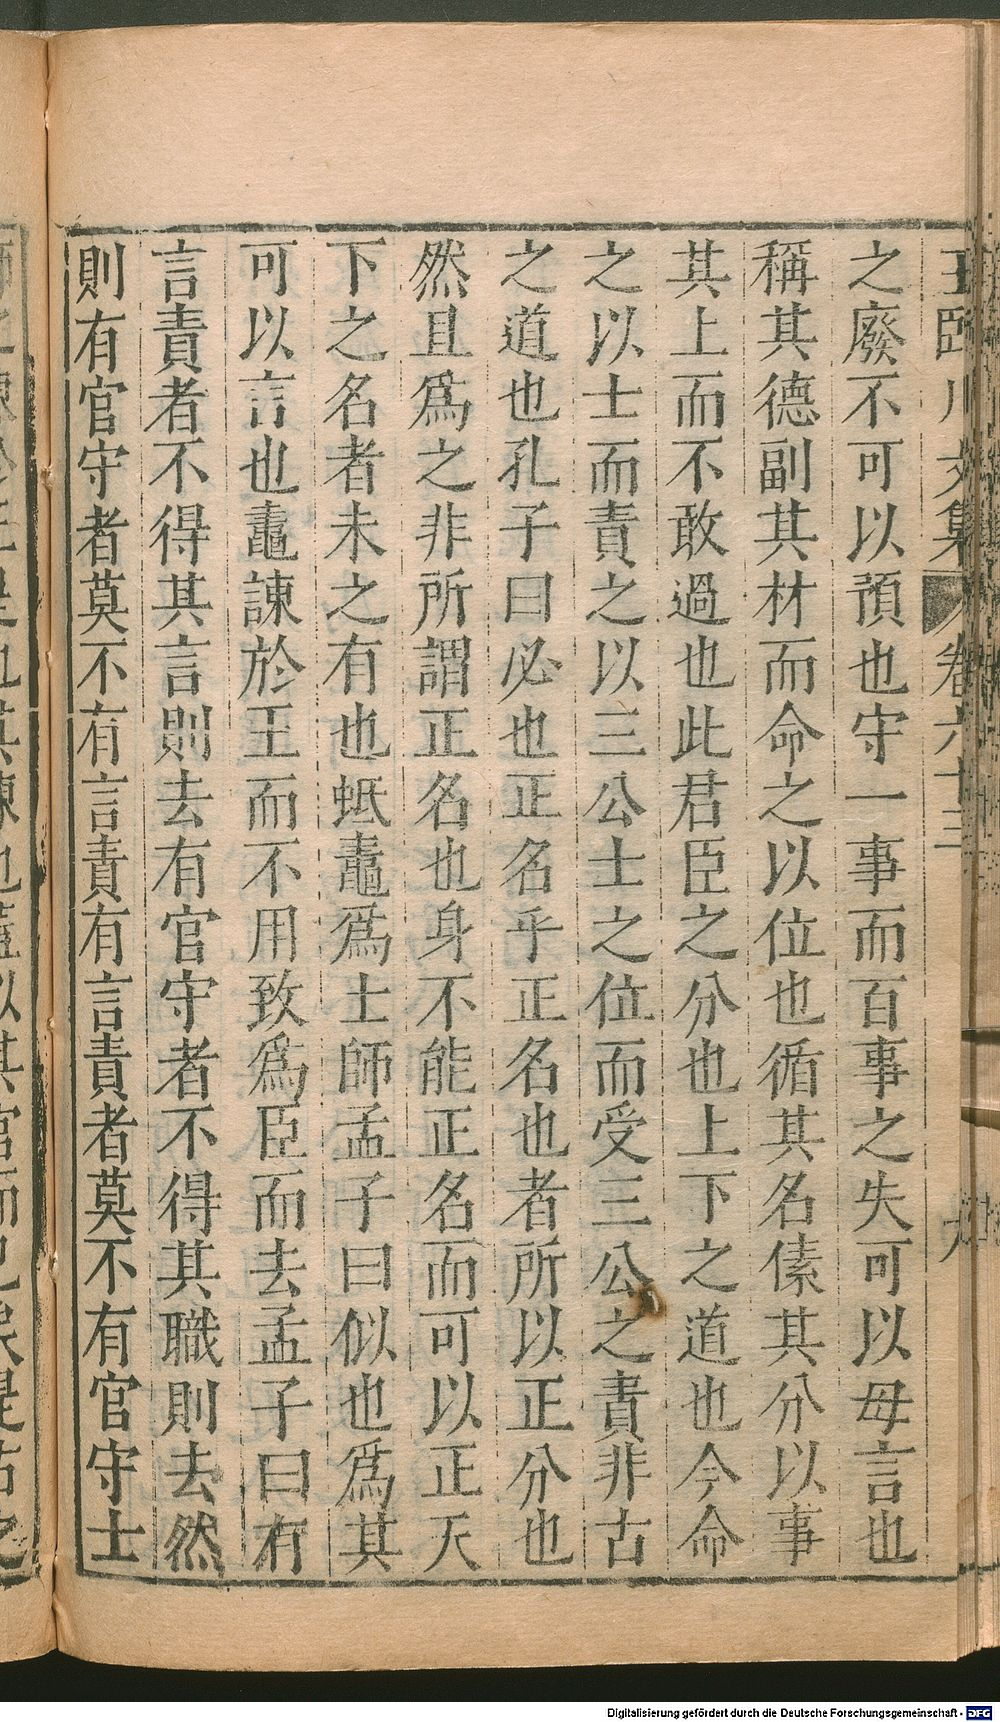 王臨川文集 卷六十三 九
之廢不可以預也守一事而百事之失可以毋言也
稱其德副其材而命之以位也循其名傃其分以事
其上而不敢過也此君臣之分也上下之道也今命
之以士而責之以三公士之位而受三公之責非古
之道也孔子曰必也正名乎正名也者所以正分也
然且爲之非所謂正名也身不能正名而可以正天
下之名者未之有也蚳鼃爲士師孟子曰似也爲其
可以言也鼃諫於王而不用致爲臣而去孟子曰有
言責者不得其言則去有官守者不得其職則去然
則有官守者莫不有言責有言責者莫不有官守士
Digitalisierung gefördert durch die Deutsche Forschungsgemeinschaft - DFG